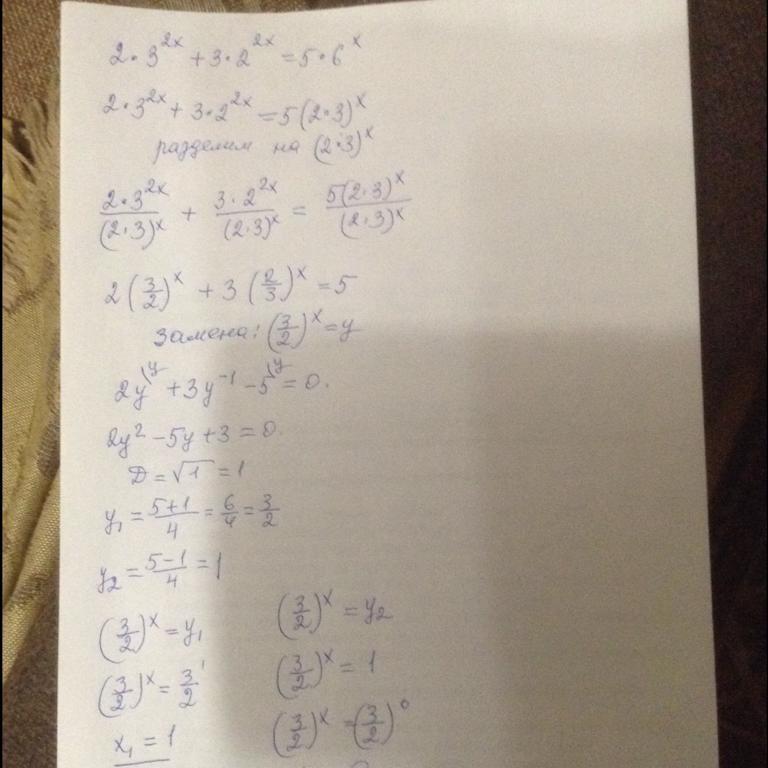 2·3^2x + 3·2^2x = 5·6^x
2·3^2x + 3·2^2x = 5(2·3)^x
разделим на (2·3)^x
2·3^2x/(2·3)^x + 3·2^2x/(2·3)^x = 5(2·3)^x/(2·3)^x
2(3/2)^x + 3(2/3)^x = 5
Замена: (3/2)^x = y
2y^\y + 3y^-1 - 5^\y = 0.
2y² - 5y + 3 = 0.
D = √1 = 1
y₁ = 5+1/4 = 6/4 = 3/2
y₂ = 5-1/4 = 1
(3/2)^x = y₁
(3/2)^x = 3/2^1
x₁ = 1
(3/2)^x = y₂
(3/2)^x = 1
(3/2)^x = (3/2)^0